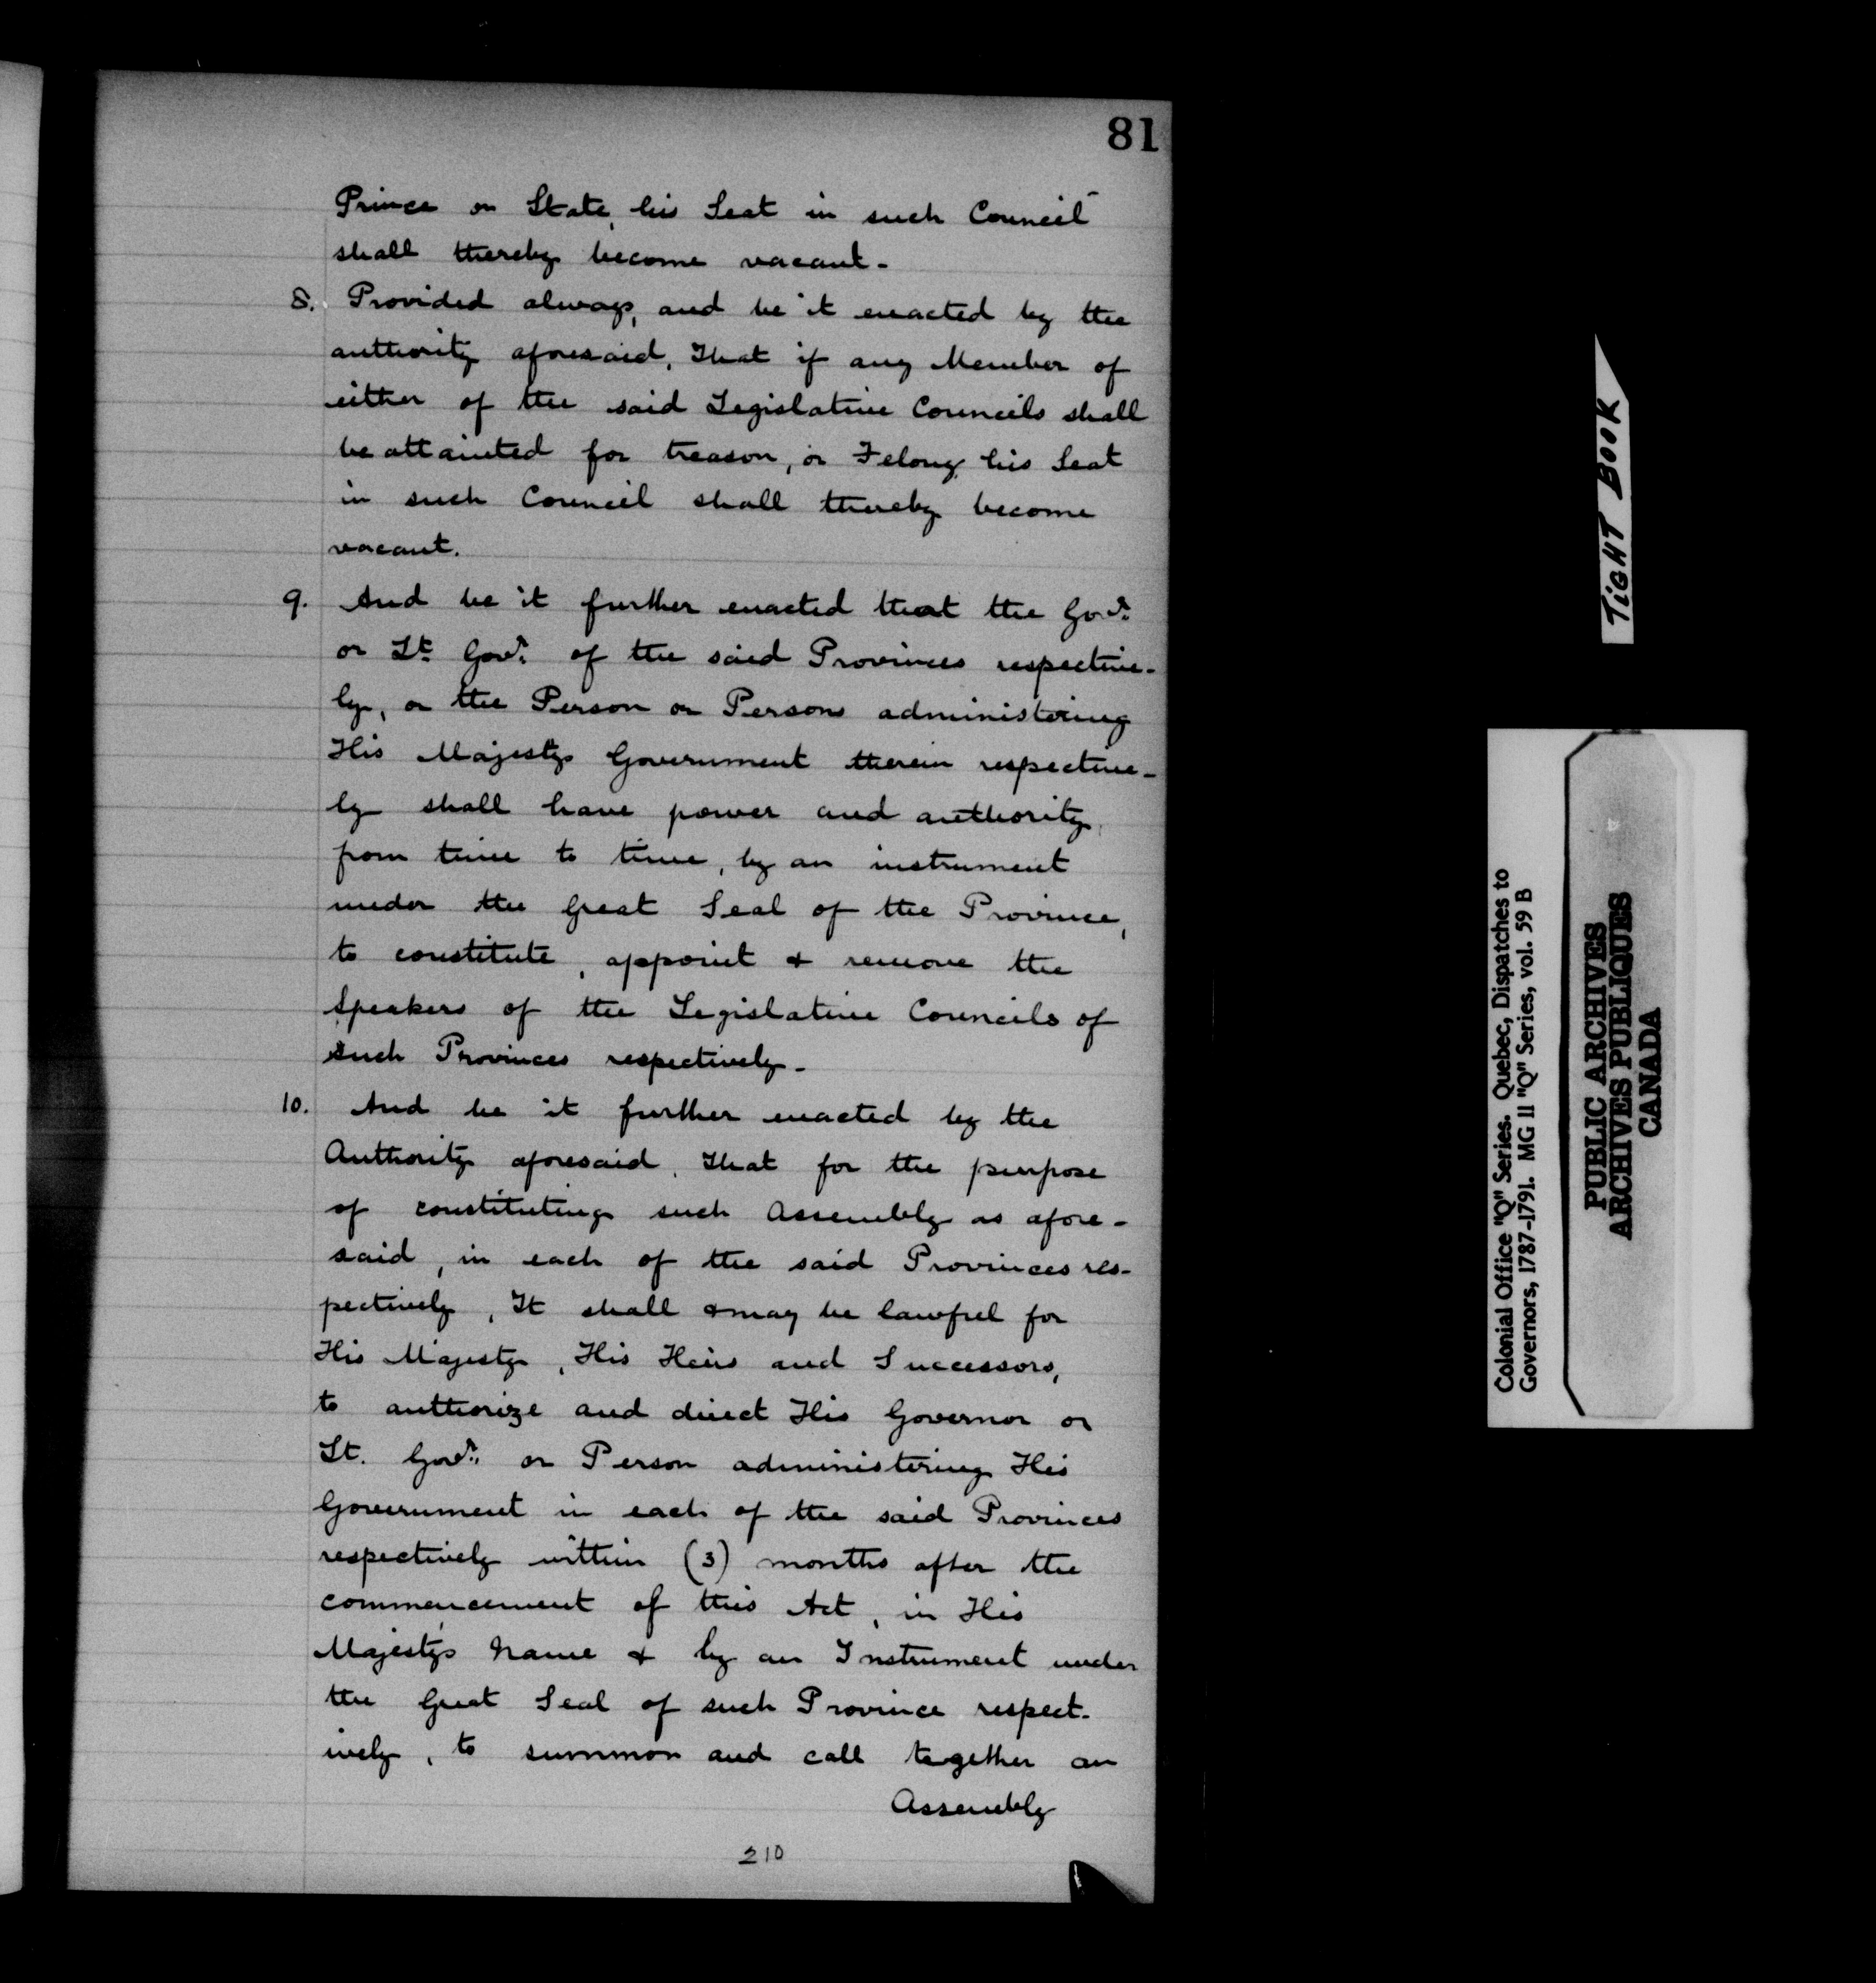 81
Prince or State, his Seat in such Council
shall thereby become vacant-
8. Provided always, and be it enacted by the
authority aforesaid, That if any Member of
either of the said Legislative Councils shall
be attainted for treason, or Felony, his Seat
in such Council shall thereby become
vacant.
9. And be it further enacted that the Govr.
or Lt. Govr. of the said Provinces respective-
ly, or the Person or Persons administering
His Majestys Government therein respective-
ly shall have power and authority,
from time to time, by an instrument
under the Great Seal of the Province,
to constitute, appoint & remove the
Speakers of the Legislative Councils of
such Provinces respectively-
10. And be it further enacted by the
Authority aforesaid, That for the purpose
of constituting such Assembly as afore-
said, in each of the said Provinces res-
pectively, It shall & may be lawful for
His Majesty, His Heirs and Successors,
to authorize and direct His Governor or
Lt. Govr. or Person administering His
Government in each of the said Provinces
respectively within (3) months after the
commencement of this Act, in His
Majestys Name & by an Instrument under
the Great Seal of such Province respect-
ively, to summon and call together an
Assembly
210
TIGHT BOOK
Colonial Office "Q" Series. Quebec, Dispatches to
Governors, 1787-1791. MG 11 "Q" Series, vol. 59 B
PUBLIC ARCHIVES
ARCHIVES PUBLIQUES
CANADA